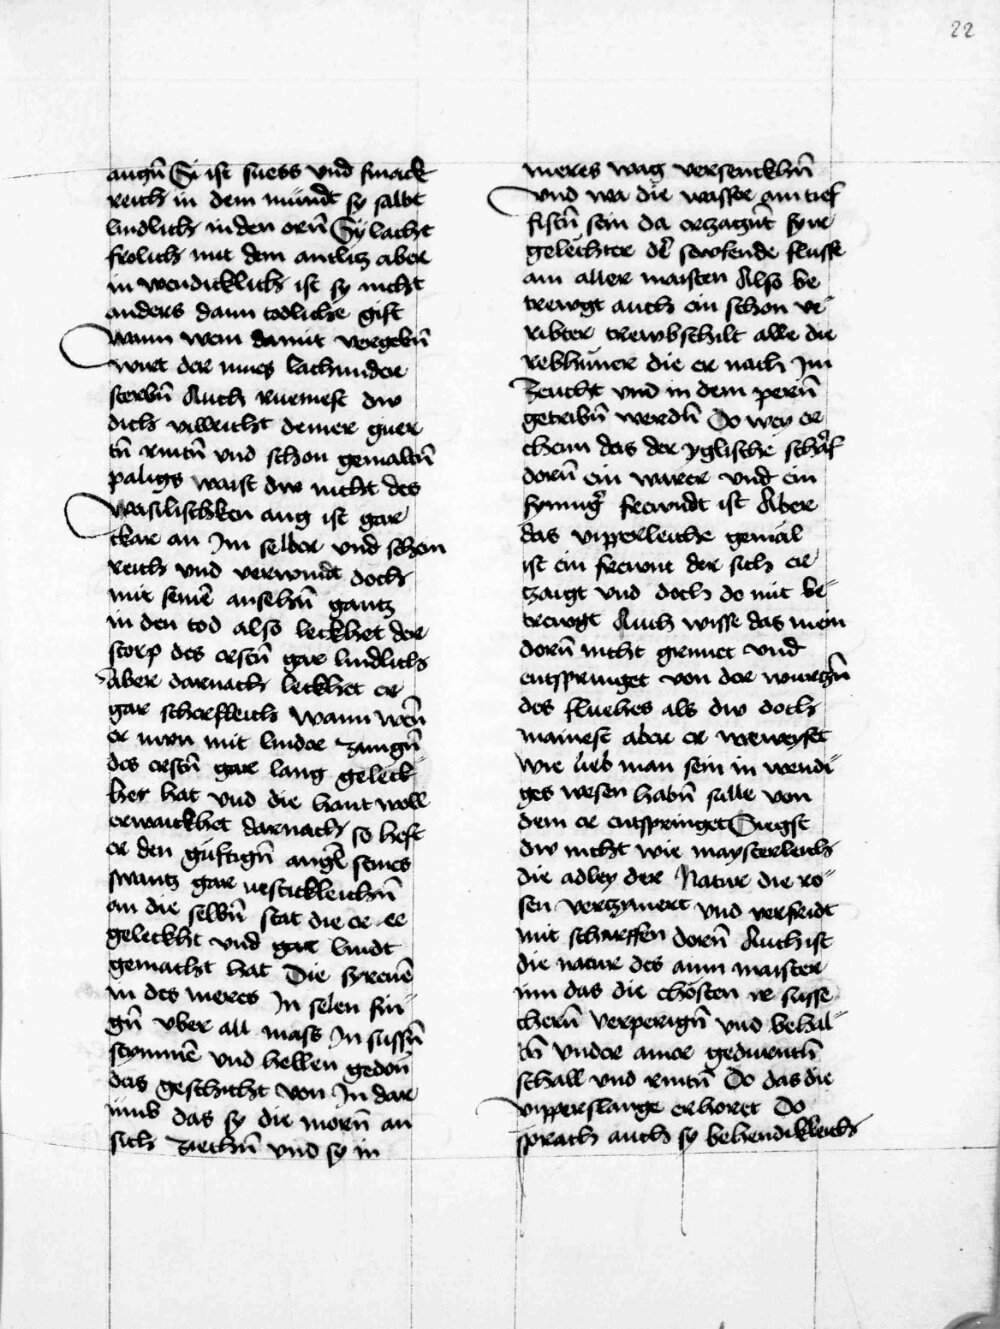 22
augñ Si ist suess vnd smack
reich in dem mündt sy salbt
lindlich in den orñ Sy lacht
frolich mit dem antlitz aber
in wendicklich ist sy nicht
anders dann todliche gift
wann wem damit vergebñ
wirt der mues lachunder
sterbñ Auch ruemest dw
dich villeicht deiner guer
tñ rintñ vnd schon gemaltñ
paligs waist dw nicht des
wasilischken aug ist gar
clar an Im selber vnd schon
reich vnd verwindt doch
mit seinē ansehñ gantz
in den tod also leckhet der
storp des erstñ gar lindlich
Aber darnach leckhet er
gar scherffleich wann weñ
er nwn mit linder zungñ
des erstñ gar lang geleck
het hat vnd die haut woll
erwaickhet darnach so heft
er den güftigñ angl seines
swantz gar vestickleichñ
an die selbñ stat die er ee
geleckht vnd gar lindt
gemacht hat Die syrenē
in des meres In selen sin
gñ vber all mass In sussñ
stymmē vnd hellen gedoñ
das geschicht von In dar
umb das sy die morñ an
sich ziechñ vnd sy in
meres wag versenckhñ
vnd wa die wasser am tief
fistñ sein da erzagñt sy ir
gelechter der sewfende flusse
am aller maisten Also be
trewgt auch ein schon ve
ribter trewbschilt alle die
rebhüner die er nach Im
zeucht vnd in dem perñ
getribñ werdñ Do wey er
chenn das der yglische scharf
dorñ ein warer vnd ein
synnigr frewndt ist Aber
das vipperleiche gemäl
ist ein frewnt der sich er
tzaigt vnd doch do mit be
trewgt Auch wisse das mein
dorñ nicht gruuet vnd
entspringet von der wurtzñ
des fluehes als dw doch
mainest aber er vnweyset
wie lieb man sein in wendi
ges wesen habñ sulle von
dem er entspringet Siegst
dw nicht wie maysterleich
die adley der Natur die ro
sen vertzymert vnd verfridt
mit scharffen dorñ Auch ist
die natur des ainn maister
inn das die chösten ir susse
chernn verperigñ vnd behal
tñ vnder ainer gedurntñ
schall vnd rintñ Do das die
vipperslange erhoret Do
sprach auch sy behendickleich